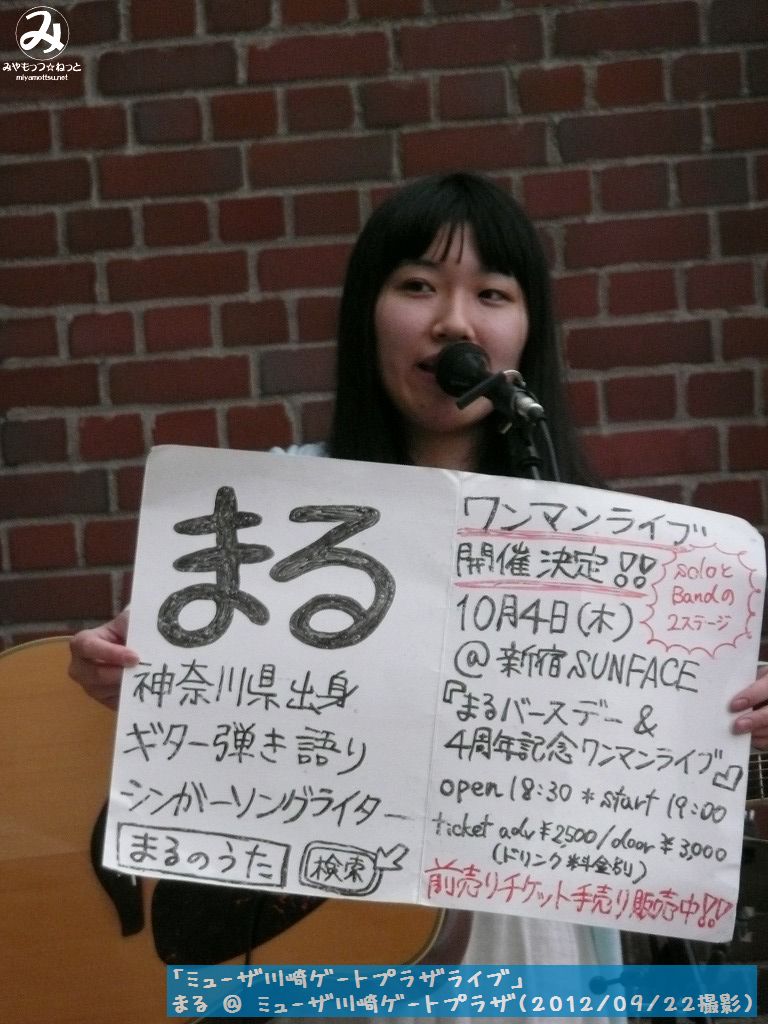 み
みやもっつ☆ねっと
miyamottsu.net
まる
神奈川県出身
ギター弾き語り
シンガーソングライター
まるのうた 検索
ワンマンライブ
開催決定!!
soloと
Bandの
2ステージ
10月4日(木)
@新宿SUNFACE
『まるバースデー&
4周年記念ワンマンライブ』
open 18:30 * start 19:00
ticket adv ¥2500/door ¥3,000
(ドリンク料金あり)
前売りチケット手売り販売中!!
「ミューザ川崎ゲートプラザライブ」
まる @ ミューザ川崎ゲートプラザ(2012/09/22撮影)